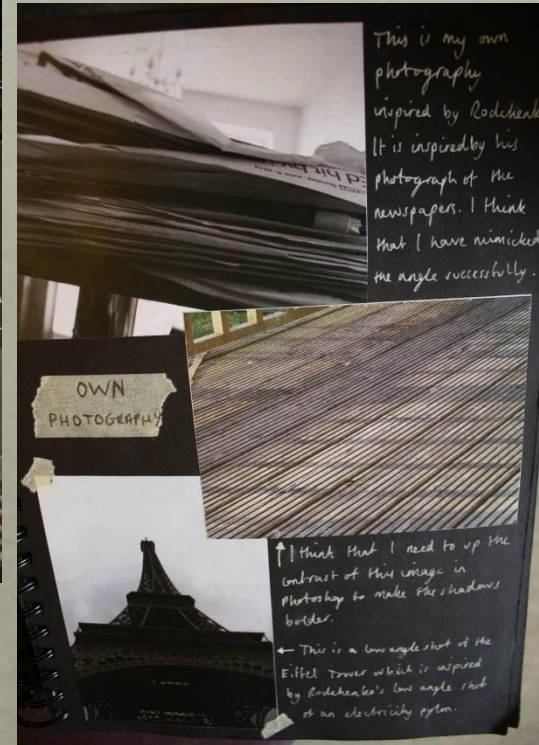 This is my own
photography
inspired by Rodchenko
It is inspired by his
photograph of the
newspapers. I think
that I have mimicked
the angle successfully.
OWN
PHOTOGRAPHY
I think that I need to up the
contrast of this image in
Photoshop to make the shadows
bolder.
This is a low angle shot of the
Eiffel Tower which is inspired
by Rodchenko's low angle shot
of an electricity pylon.